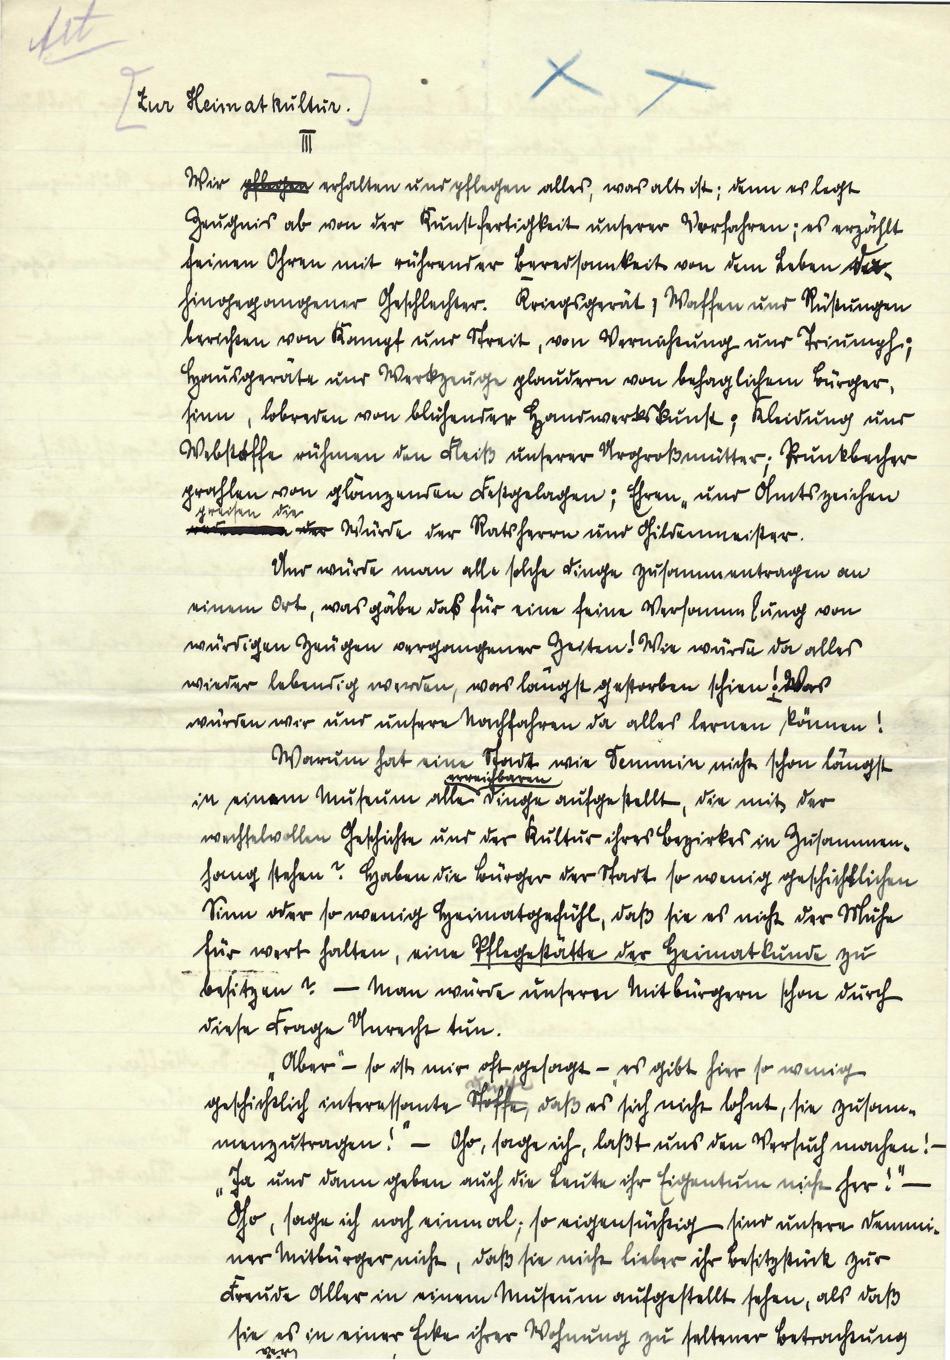 Art
[Zur Heimatkultur.]
III
Wir pflegen erhalten und pflegen alles, was alt ist; denn es legt
Zeugnis ab von der Kunstfertigkeit unserer Vorfahren; es erzählt
feinen Ohren mit rührender Beredsamkeit von dem Leben da-
hingegangener Geschlechter. Kriegsgerät, Waffen und Rüstungen
berichten von Kampf und Streit, von Vernichtung und Triumph;
Hausgeräte und Werkzeuge plaudern von behaglichem Bürger-
sinn, lobreden von blühender Handwerkskunst; Kleidung und
Webstoffe rühmen den Fleiß unserer Urgroßmütter; Prunkbecher
prahlen von glänzenden Festgelagen; Ehren- und Amtszeichen
preisen die
der Würde der Ratsherrn und Gildenmeister.
Und würde man alle solche Dinge zusammentragen an
einem Ort, was gäbe das für eine feine Versammlung von
würdigen Zeugen vergangener Zeiten! Wie würde da alles
wieder lebendig werden, was längst gestorben schien! Was
würden wir und unsere Nachfahren da alles lernen können!
Warum hat eine Stadt wie Demmin nicht schon längst
erreichbaren
in einem Museum alle Dinge aufgestellt, die mit der
wechselvollen Geschichte und der Kultur ihres Bezirkes in Zusammen-
hang stehen? Haben die Bürger der Stadt so wenig geschichtlichen
Sinn oder so wenig Heimatgefühl, daß sie es nicht der Mühe
für wert halten, eine Pflegestätte der Heimatkunde zu
besitzen? — Man würde unseren Mitbürgern schon durch
diese Frage Unrecht tun.
„Aber" — so ist mir oft gesagt — „es gibt hier so wenig
geschichtlich interessante Stoffe, daß es sich nicht lohnt, sie zusam-
menzutragen!" — Oho, sage ich, laßt uns den Versuch machen! —
„Ja und dann geben auch die Leute ihr Eigentum nicht her!" —
Oho, sage ich noch einmal; so eigensüchtig sind unsere Demmi-
ner Mitbürger nicht, daß sie nicht lieber ihr Besitzstück zur
Freude Aller in einem Museum aufgestellt sehen, als daß
sie es in einer Ecke ihrer Wohnung zu seltener Betrachtung
ver